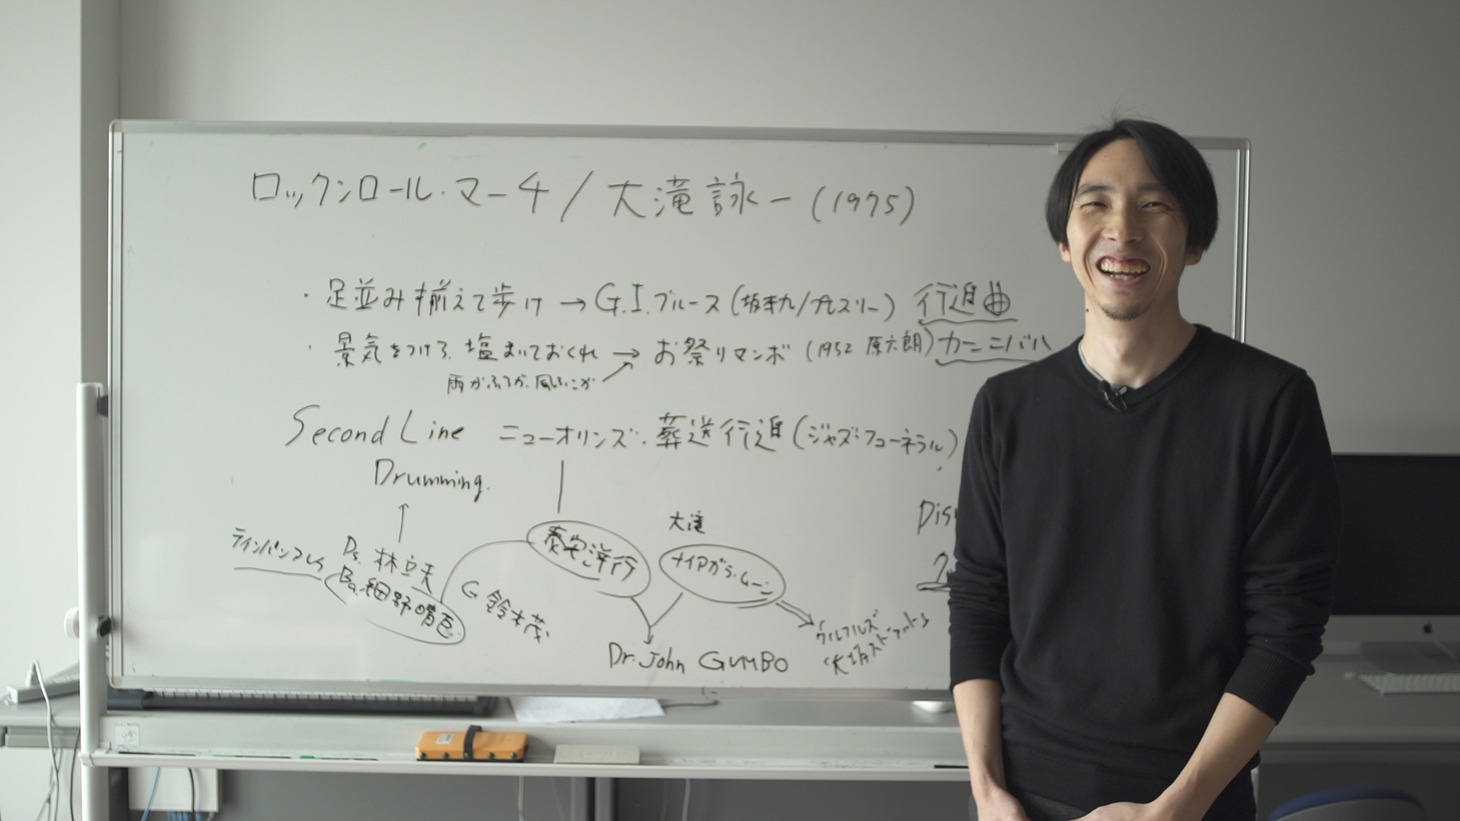 ロックンロール・マーチ / 大滝詠一 (1975)
・足並み揃えて歩け → G.I.ブルース (坂本九/プレスリー) 行進曲
・景気をつけろ、塩まいておくれ → お祭りマンボ (1952 原六朗) カーニバル
雨がふろが、風ふこが
Second Line ニューオリンズ・葬送行進 (ジャズ・フューネラル)
Drumming.
大滝
ティンパンアレイ
Ds. 林立夫
Ba. 細野晴臣
G 鈴木茂
泰安洋行
ナイアガラ・ムーン
Dr. John GUMBO
ウルフルズ
大阪ストラット